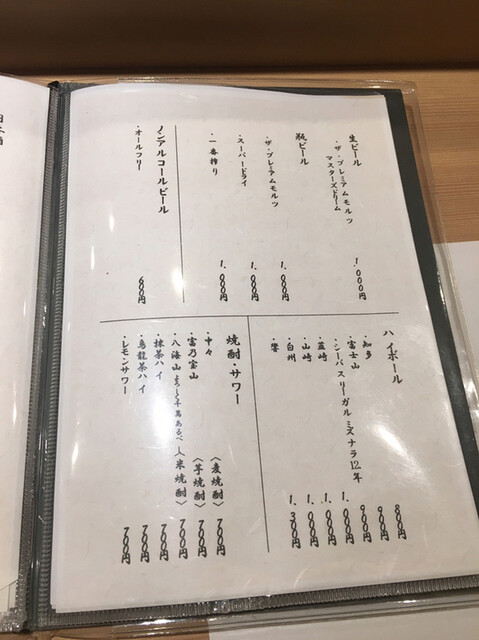 生ビール
・ザ・プレミアムモルツ
マスターズドリーム 1,000円
瓶ビール
・ザ・プレミアムモルツ 1,000円
・スーパードライ 1,000円
・一番搾り 1,000円
ノンアルコールビール
・オールフリー 600円
ハイボール
・知多 800円
・富士山 900円
・シーバスリーガル ミズナラ12年 900円
・韮崎 1,000円
・山崎 1,000円
・白州 1,000円
・響 1,300円
焼酎・サワー
・中々 〈麦焼酎〉 700円
・富乃宝山 〈芋焼酎〉 700円
・八海山 よろしく千萬あるべし 〈米焼酎〉 700円
・抹茶ハイ 700円
・烏龍茶ハイ 700円
・レモンサワー 700円